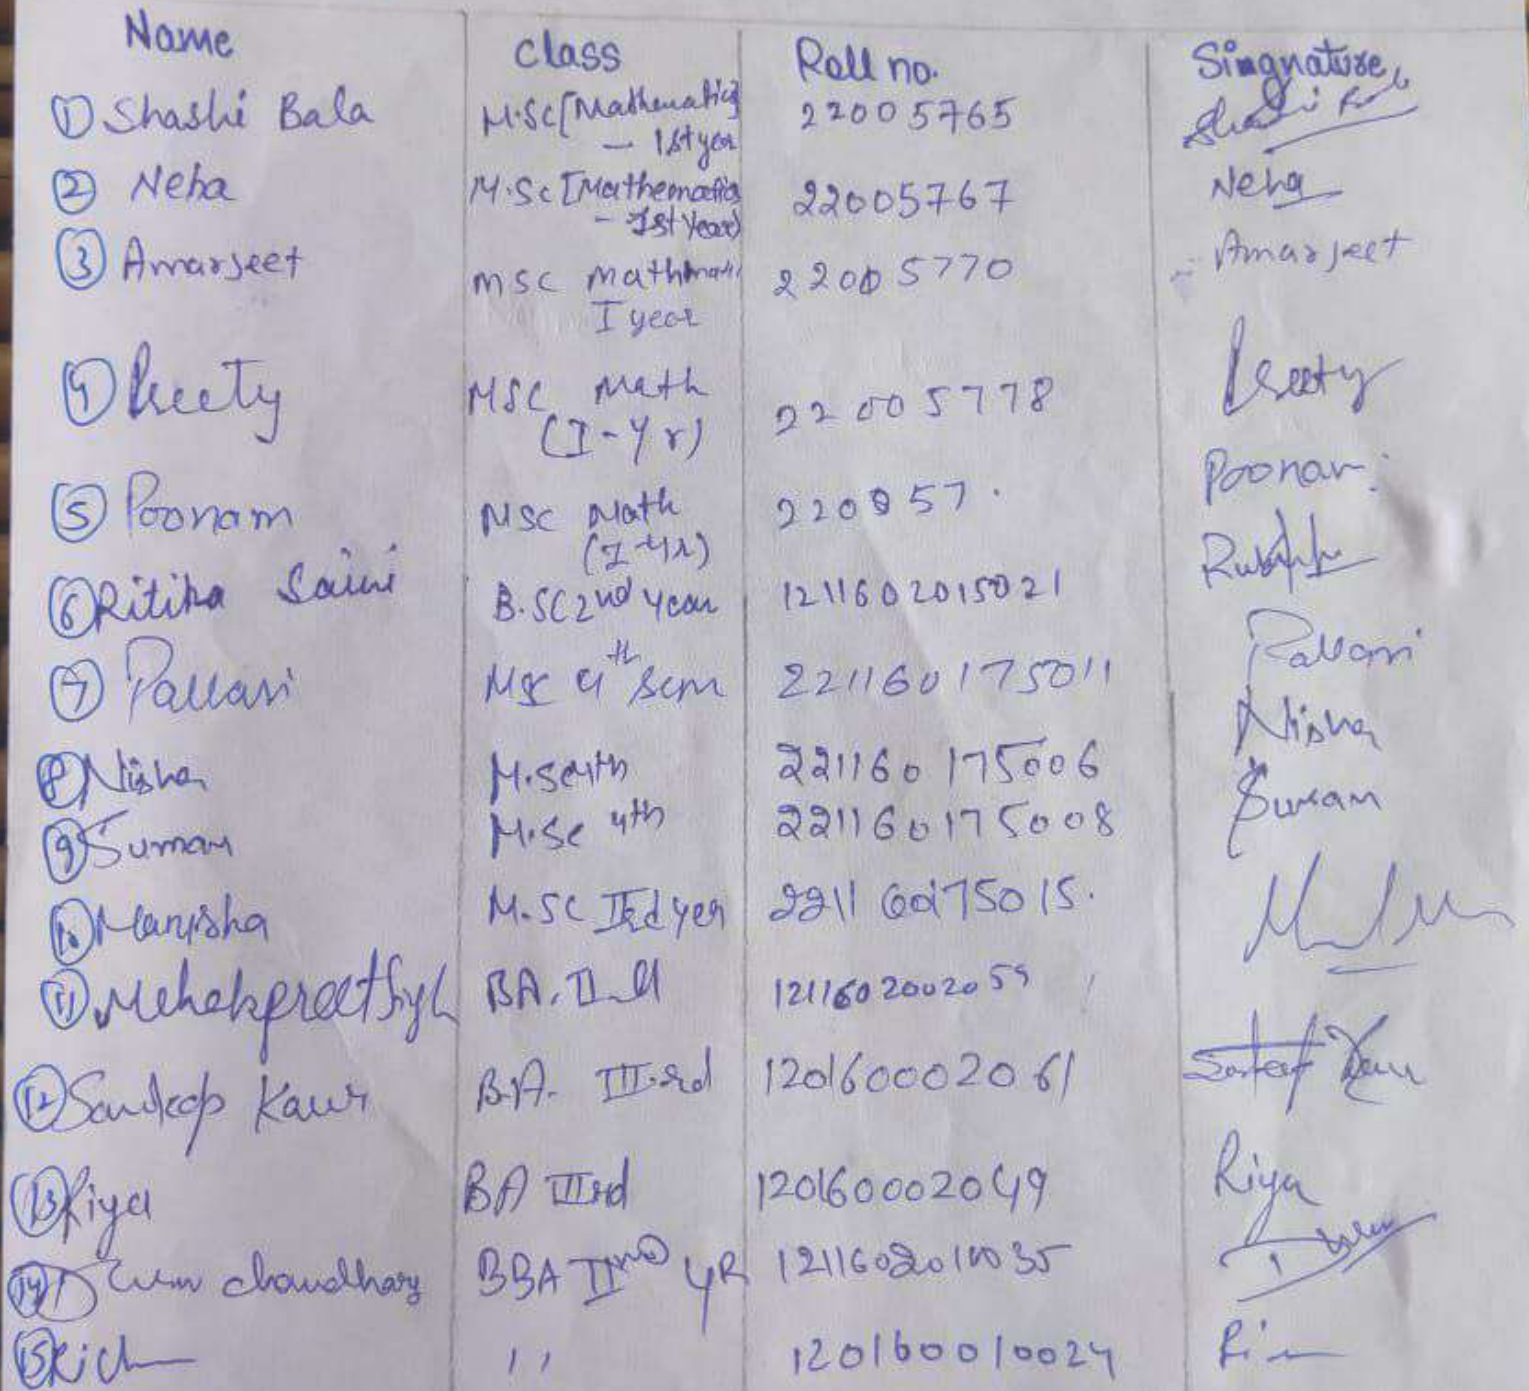 Name Class Roll no. Singnature
① Shashi Bala M.Sc [Mathematics] 22005765 Shashi Bala
— 1st year
② Neha M.Sc [Mathematics 22005767 Neha
— Ist Year)
③ Amarjeet MSC Mathmati 22005770 Amarjeet
I year
④ Preety MSC Math 22005778 Preety
(I-Yr)
⑤ Poonam MSC Math 220057 Poonam
(I-Yr)
⑥ Ritika Saini B.SC 2nd year 1211602015021
⑦ Pallavi MSC 4th Sem 221160175011 Pallavi
⑧ Nisha M.Sc 4th 221160175006 Nisha
⑨ Suman M.Sc 4th 221160175008 Suman
⑩ Manisha M.SC IInd yer 221160175015.
⑪ Mehakpreet Singh BA. II 1211602002059
⑫ Sandeep Kaur B.A. III.rd 1201600002061 Sandeep Kaur
⑬ Riya BA IIIrd 1201600002049 Riya
⑭ chaudhary BBA IInd YR
⑮ ,, 1201600010024